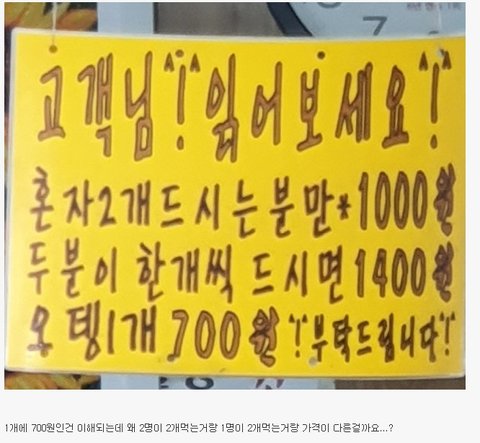 고객님 ^!^ 읽어보세요 ^!^
혼자2개드시는분만*1000원
두분이 한개씩 드시면 1400원
오뎅1개 700원 ^!^ 부탁드립니다 ^!^
1개에 700원인건 이해되는데 왜 2명이 2개먹는거랑 1명이 2개먹는거랑 가격이 다른걸까요...?